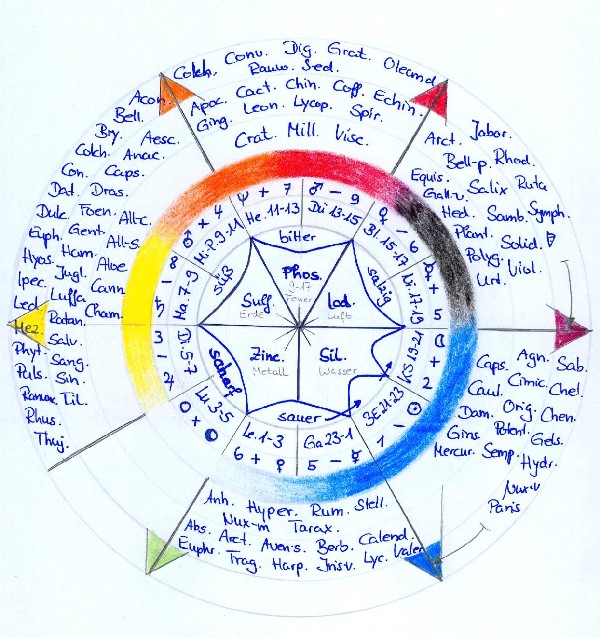 Colch. Conv. Dig. Grat. Oleand.
Rauw. Sed.
Apoc. Cact. Chin. Coff. Echin.
Ging. Leon. Lycop. Spir.
Crat. Mill. Visc.
Acon.
Bell.
Bry. Aesc.
Colch. Anac.
Con. Caps.
Dod. Dros.
Dulc. Foen. All-c.
Euph. Gent. All-s.
Hyos. Ham. Aloe
Ipec. Jugl. Cann.
Led. Luffa Cham.
Mez. Rotan.
Phyt. Salv.
Puls. Sang.
Sin.
Til.
Rhus.
Thuj.
Arct. Jabor.
Bell-p. Rhod.
Equis. Salix Ruta
Gall-v.
Hed. Samb. Symph.
Plant. Solid.
Polyg. Viol.
Urt.
Caps. Agn. Sab.
Caul. Cimic. Chel.
Dam. Orig. Chen.
Gins. Potent. Gels.
Mercur. Semp. Hydr.
Nux-v
Paris
Anh. Hyper. Rum. Stell.
Nux-m Tarax.
Abs. Arct. Aven-s. Berb. Calend.
Euphr. Trag. Harp. Iris-v. Lyc. Valer.
♆ + 7
♂ - 9
♀ - 6
+ 5
+ 2
☉ - 1
☿ - 5
♀ + 6
3 - ♃
× 4
He. 11-13
Dü 13-15
Bl. 15-17
Ni. 17-19
KS 19-21
3E 21-23
Ga 23-1
Le. 1-3
Lu. 3-5
Di. 5-7
Ma. 7-9
Mi-P. 9-11
bitter
salzig
sauer
scharf
süß
Phos.
9-17
Feuer
Iod.
Luft
Sil.
Wasser
Zinc.
Metall
Sulf.
Erde